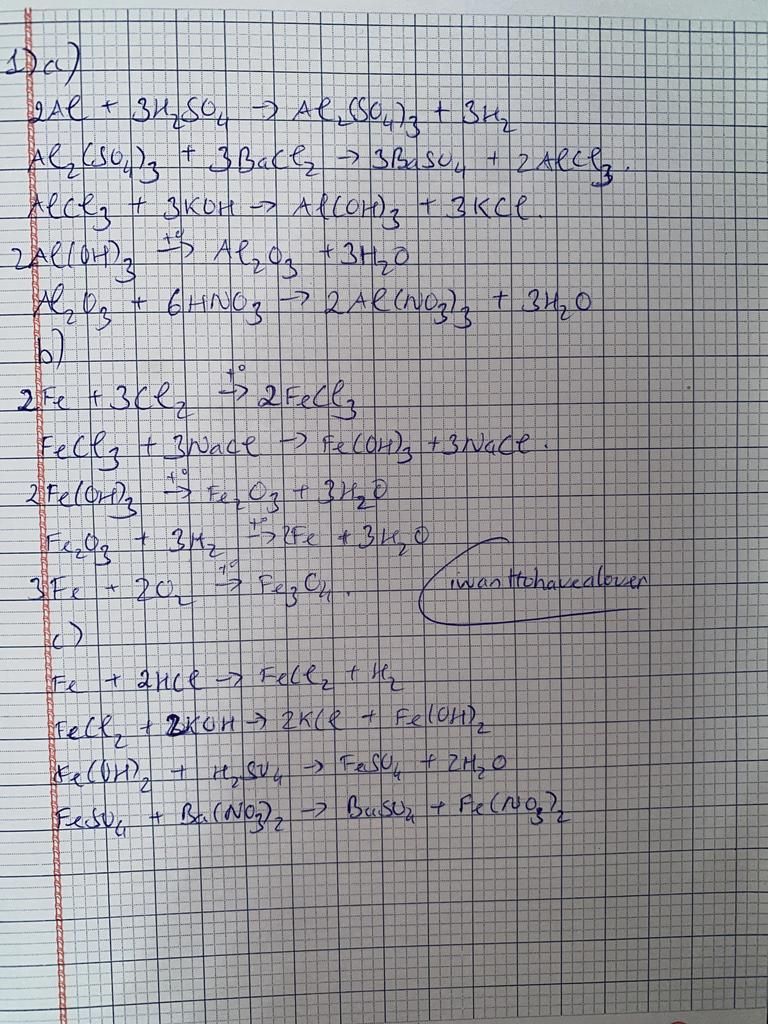 1) a)
2Al + 3H₂SO₄ → Al₂(SO₄)₃ + 3H₂
Al₂(SO₄)₃ + 3BaCl₂ → 3BaSO₄ + 2AlCl₃.
AlCl₃ + 3KOH → Al(OH)₃ + 3KCl.
2Al(OH)₃ →(t°) Al₂O₃ + 3H₂O
Al₂O₃ + 6HNO₃ → 2Al(NO₃)₃ + 3H₂O
b)
2Fe + 3Cl₂ →(t°) 2FeCl₃
FeCl₃ + 3NaCl → Fe(OH)₃ + 3NaCl.
2Fe(OH)₃ →(t°) Fe₂O₃ + 3H₂O
Fe₂O₃ + 3H₂ →(t°) 2Fe + 3H₂O
3Fe + 2O₂ →(t°) Fe₃O₄. iwanttohavealover
c)
Fe + 2HCl → FeCl₂ + H₂
FeCl₂ + 2KOH → 2KCl + Fe(OH)₂
Fe(OH)₂ + H₂SO₄ → FeSO₄ + 2H₂O
FeSO₄ + Ba(NO₃)₂ → BaSO₄ + Fe(NO₃)₂